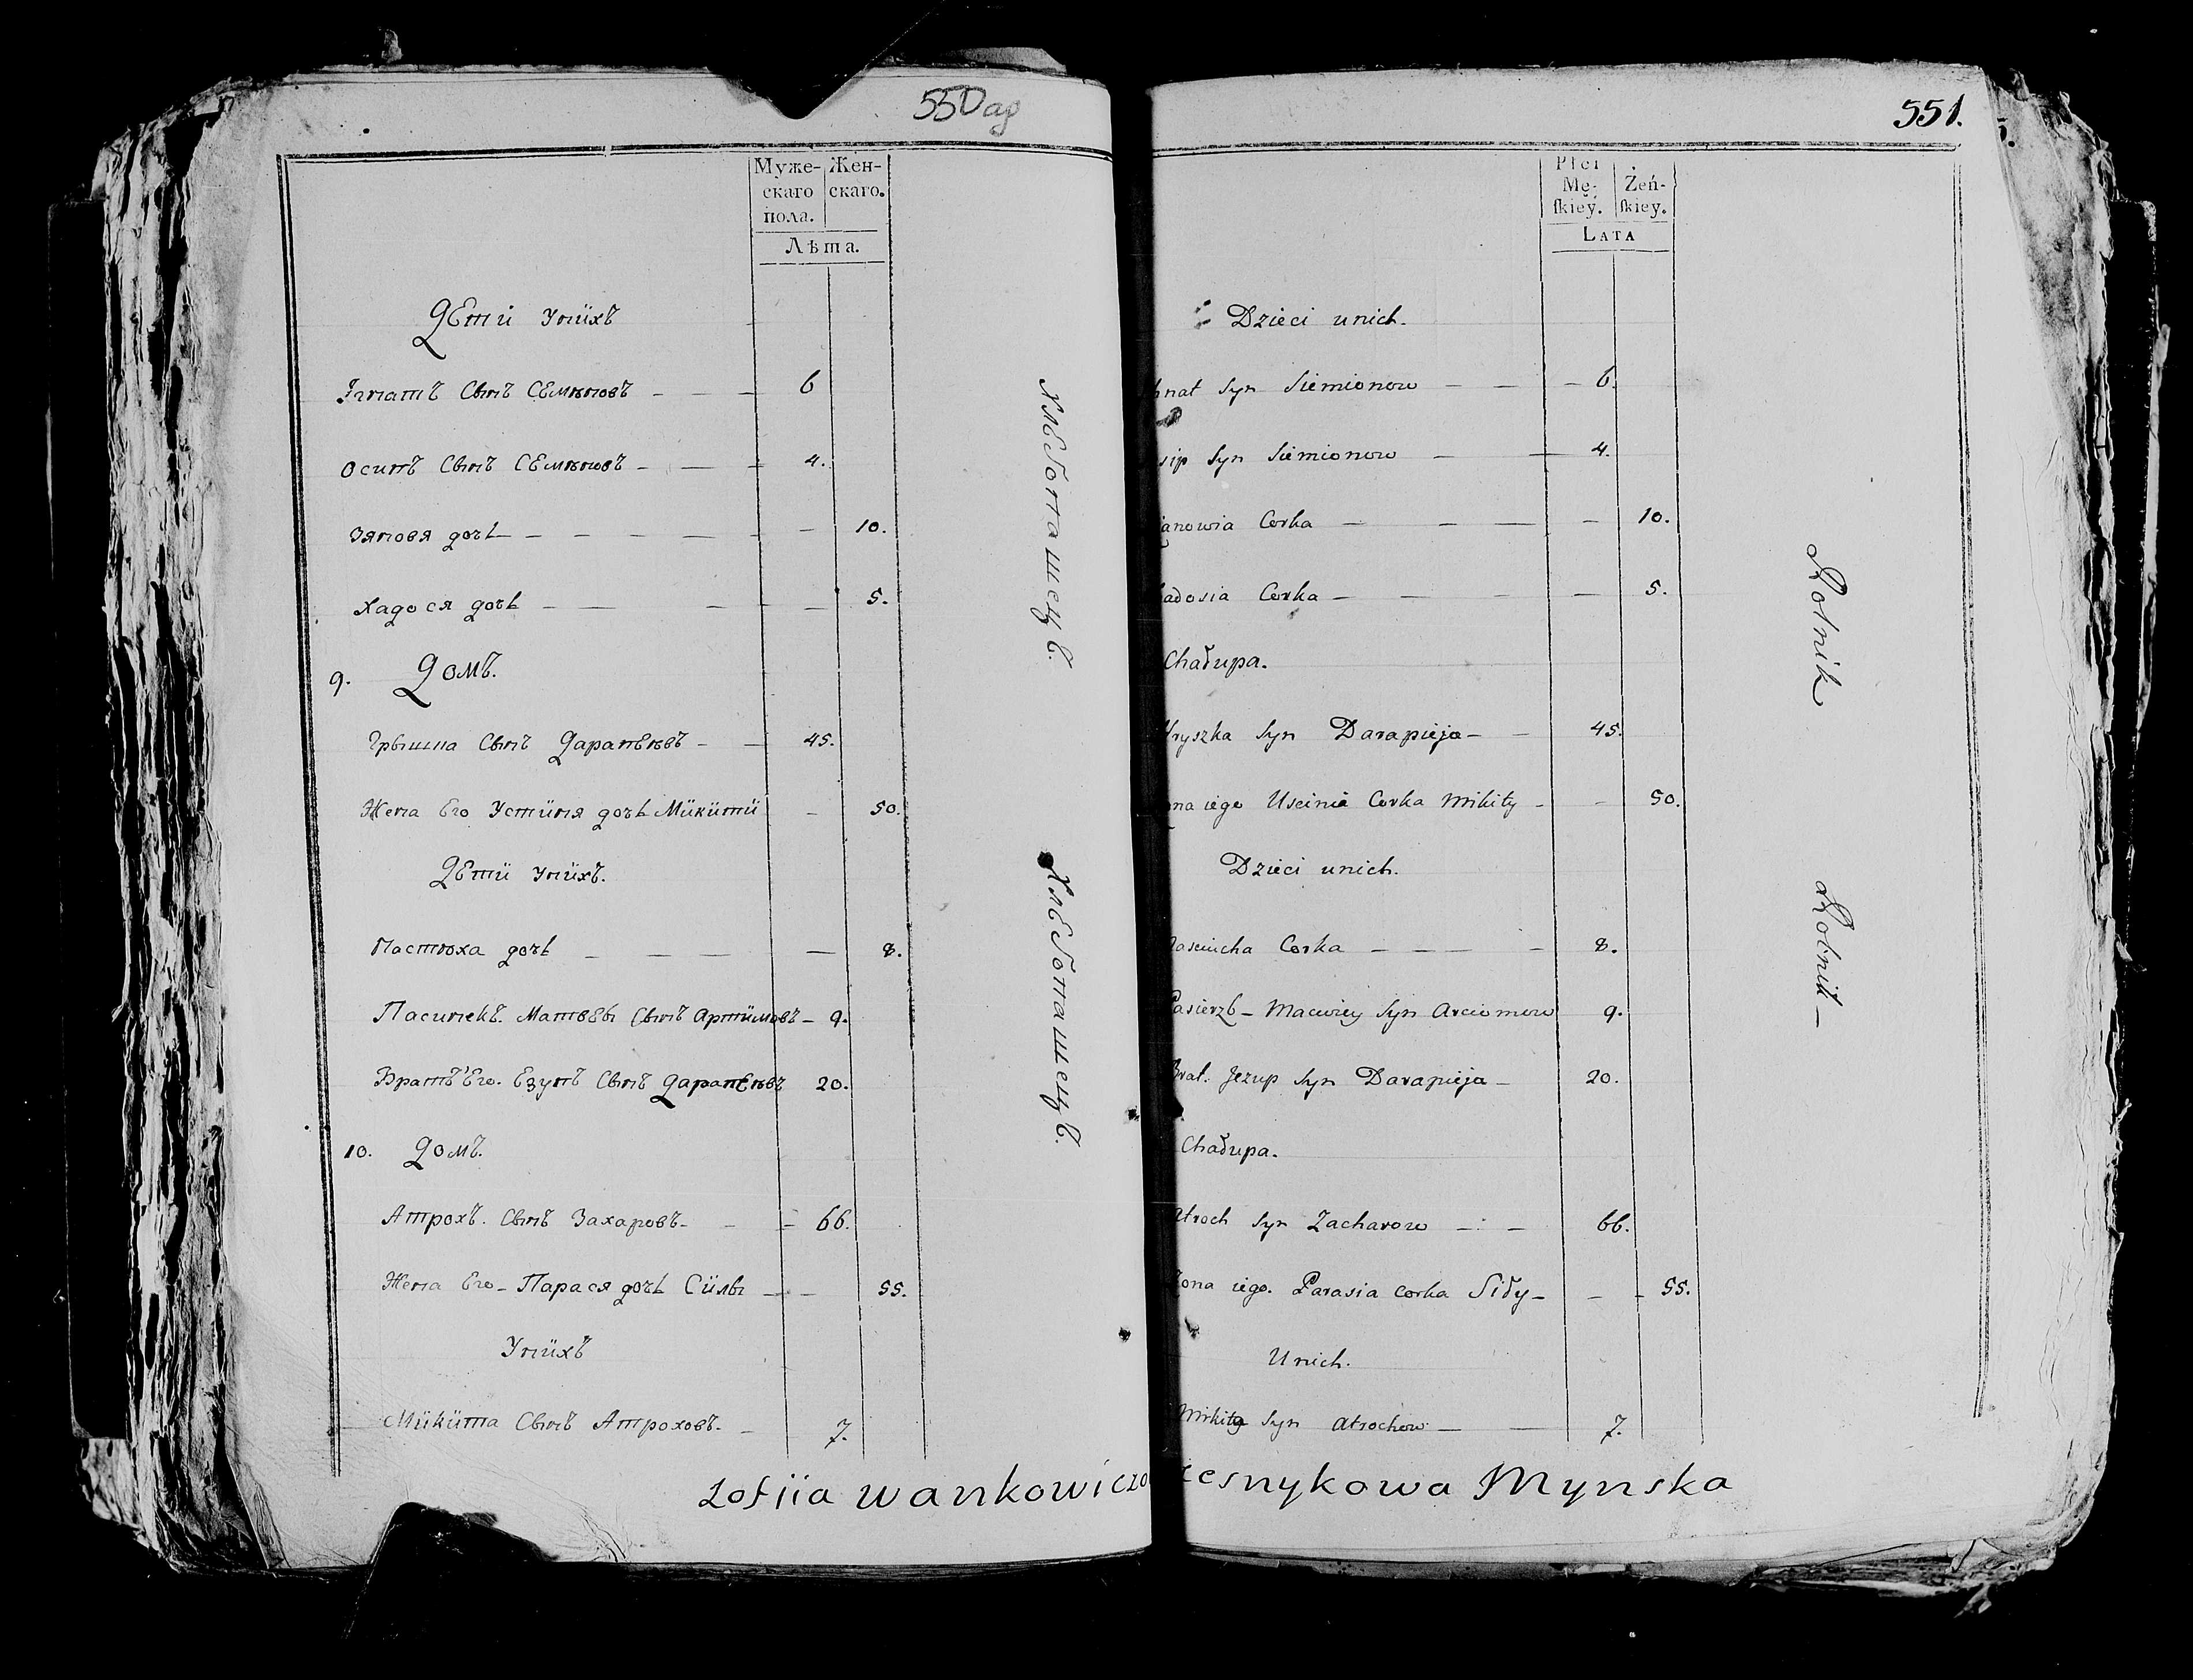 550 аб
Муже- Жен-
скаго скаго.
пола.
Лѣта.
Дети унихъ
Игнатъ Сынъ Семионовъ - - - 6
Осипъ Сынъ Семионовъ - - - 4.
Зяновя дочь - - - - - - 10.
Хадося дочь - - - - - 5.
9. Домъ.
Грышка Сынъ Дарапеювъ - - 45.
Жена Его Устиня дочь Микити - 50.
Дети унихъ.
Настюха дочь - - - - 8.
Пасинекъ. Матвеы Сынъ Артимовъ - 9.
Братъ Его. Езупъ Сынъ Дарапеювъ 20.
10. Домъ.
Атрохъ. Сынъ Захаровъ - - - 66.
Жена Его - Парася дочь Силы - - 55.
Унихъ
Микита Сынъ Атроховъ. - 7.
Хлебопашецъ.
Хлебопашецъ.
Zofiia wankowiczo
551.
Płci
Mę- Żeń-
skiey. skiey.
LATA
Dzieci unich.
hnat Syn Siemionow - - - 6.
sip Syn Siemionow - - 4.
anowia Corka - - - - 10.
adosia Corka - - - - 5.
Chałupa.
Hryszka Syn Darapieja - - 45.
ona iego Uscinia Corka Mikity - - 50.
Dzieci unich.
asciucha Corka - - - - 8.
Pasierzb - Maciwiey Syn Arciomow 9.
Brat. Jezup Syn Darapieja - 20.
Chałupa.
Atroch Syn Zacharow - - 66.
Żona iego. Parasia Corka Siły - - - 55.
Unich.
Mikita Syn Atrochow - - 7.
Rolnik
Rolnik -
zesnykowa Mynska